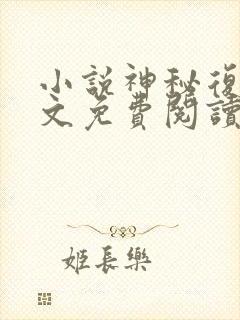 小說神秘復
文免費閱讀
姬長樂